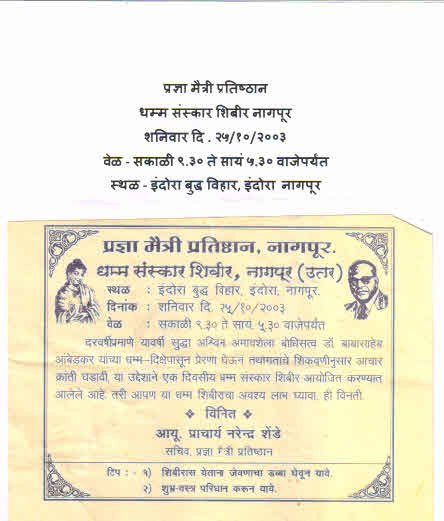 प्रज्ञा मैत्री प्रतिष्ठान
धम्म संस्कार शिबीर नागपूर
शनिवार दि . २५/१०/२००३
वेळ - सकाळी ९.३० ते सायं ५.३० वाजेपर्यंत
स्थळ - इंदोरा बुद्ध विहार, इंदोरा नागपूर
प्रज्ञा मैत्री प्रतिष्ठान, नागपूर.
धम्म संस्कार शिबीर, नागपूर (उत्तर)
स्थळ : इंदोरा बुद्ध विहार, इंदोरा, नागपूर.
दिनांक : शनिवार दि. २५/१०/२००३
वेळ : सकाळी ९.३० ते सायं. ५.३० वाजेपर्यंत
दरवर्षीप्रमाणे यावर्षी सुद्धा अश्विन अमावशेला बोधिसत्व डॉ. बाबासाहेब
आंबेडकर यांच्या धम्म-दिक्षेपासून प्रेरणा घेऊन तथागताचे शिकवणीनुसार आचार
क्रांती घडावी, या उद्देशाने एक दिवसीय धम्म संस्कार शिबीर आयोजित करण्यात
आलेले आहे. तरी आपण या धम्म शिबीराचा अवश्य लाभ घ्यावा. ही विनंती.
❖ विनित ❖
आयू. प्राचार्य नरेन्द्र शेंडे
सचिव, प्रज्ञा मैत्री प्रतिष्ठान
टिप : - १) शिबीरास येताना जेवणाचा डब्बा घेवून यावे.
२) शुभ्र-वस्त्र परिधान करून यावे.